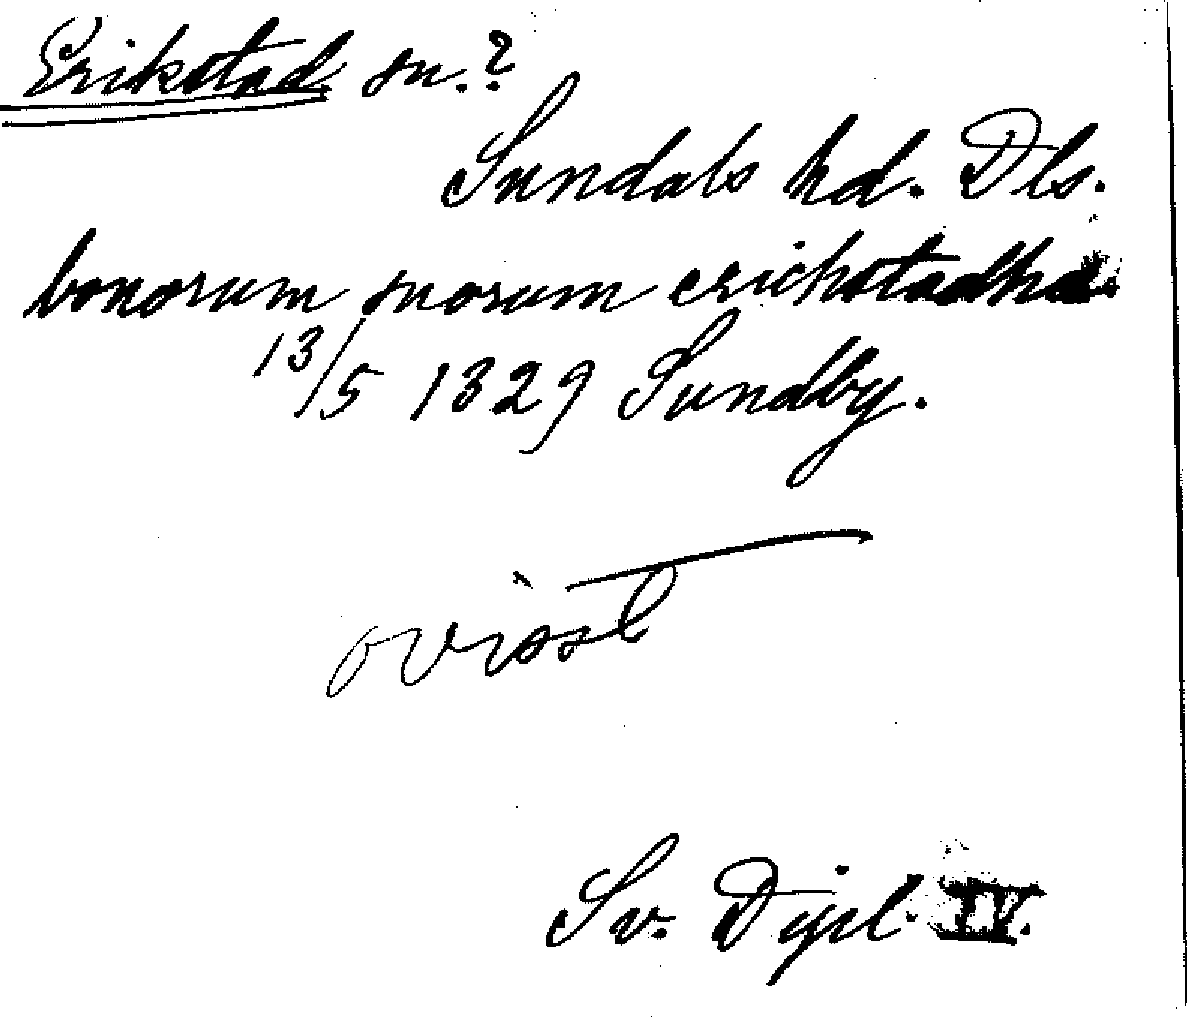 Erikstad sn.?
Sundals hd. Dls.
bonorum suorum erichstadha.
13/5 1329 Sundby.
ovisst
Sv. Dipl. IV.